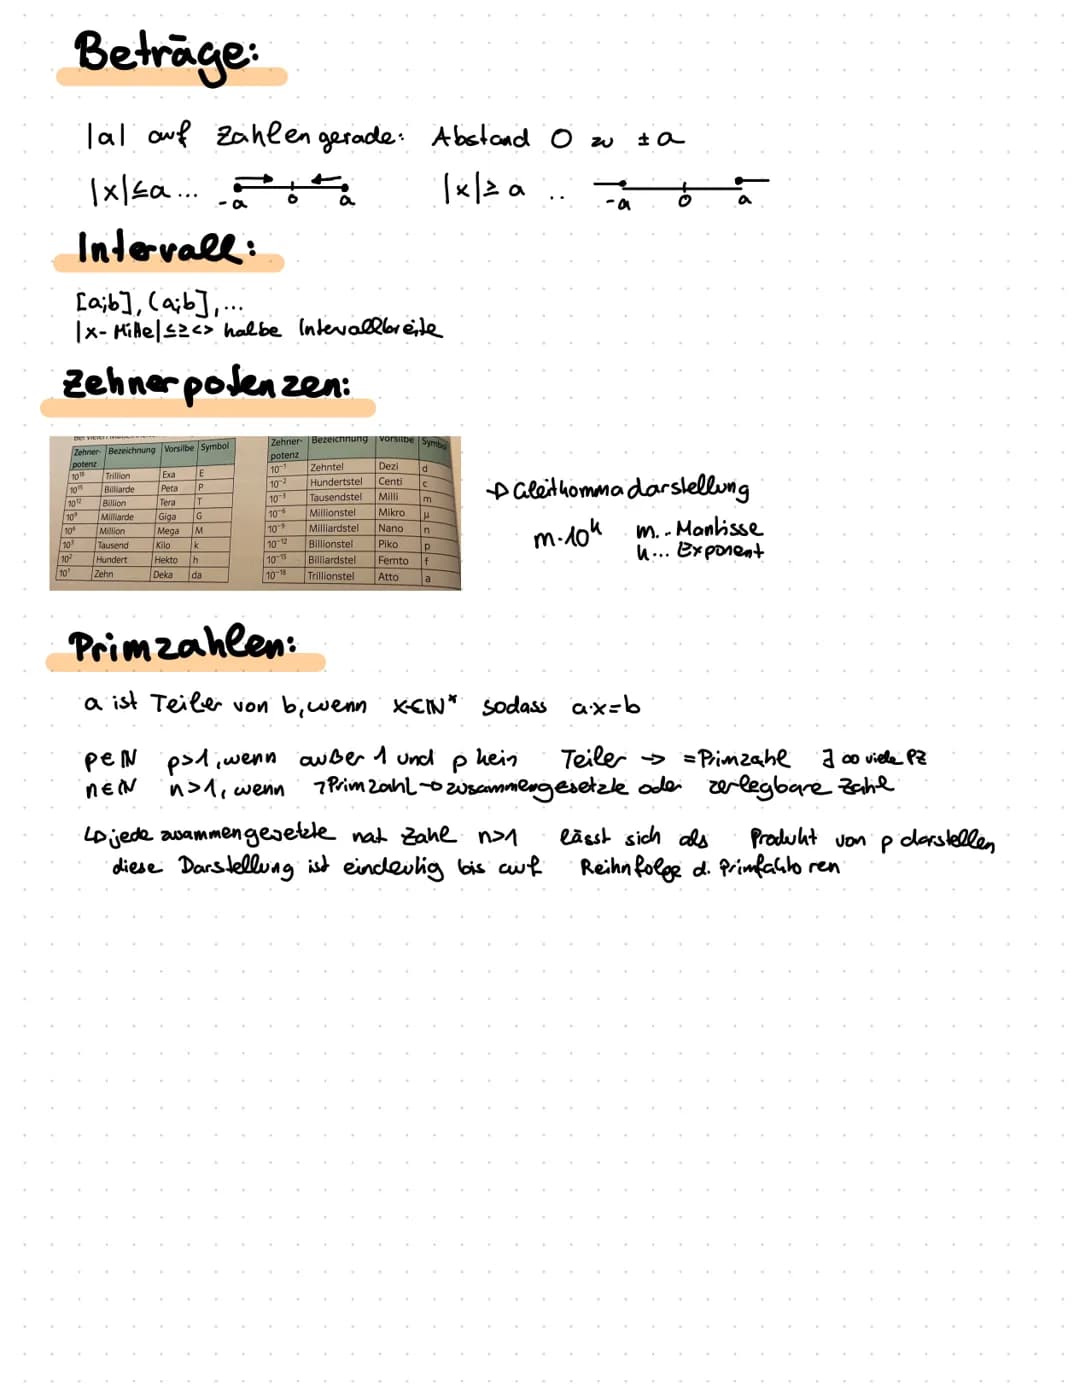 Beträge:
|a| auf Zahlengerade: Abstand 0 zu ±a
|x|≤a... -a 0 a |x|≥a .. -a 0 a
Intervall:
[a;b], (a;b],...
|x-Mitte|≤≥<> halbe Intervallbreite
Zehnerpotenzen:
Zehner- Bezeichnung Vorsilbe Symbol
potenz
10¹⁸ Trillion Exa E
10¹⁵ Billiarde Peta P
10¹² Billion Tera T
10⁹ Milliarde Giga G
10⁶ Million Mega M
10³ Tausend Kilo k
10² Hundert Hekto h
10¹ Zehn Deka da
Zehner- Bezeichnung Vorsilbe Symbol
potenz
10⁻¹ Zehntel Dezi d
10⁻² Hundertstel Centi c
10⁻³ Tausendstel Milli m
10⁻⁶ Millionstel Mikro µ
10⁻⁹ Milliardstel Nano n
10⁻¹² Billionstel Piko p
10⁻¹⁵ Billiardstel Femto f
10⁻¹⁸ Trillionstel Atto a
→ Gleitkommadarstellung
m·10ᵏ m.. Mantisse
k... Exponent
Primzahlen:
a ist Teiler von b, wenn x∈ℕ* sodass a·x=b
p∈ℕ p>1, wenn außer 1 und p kein Teiler → =Primzahl ∃ ∞ viele PZ
n∈ℕ n>1, wenn ¬Primzahl → zusammengesetzte oder zerlegbare Zahl
↳ jede zusammengesetzte nat Zahl n>1 lässt sich als Produkt von p darstellen,
diese Darstellung ist eindeutig bis auf Reihnfolge d. Primfaktoren